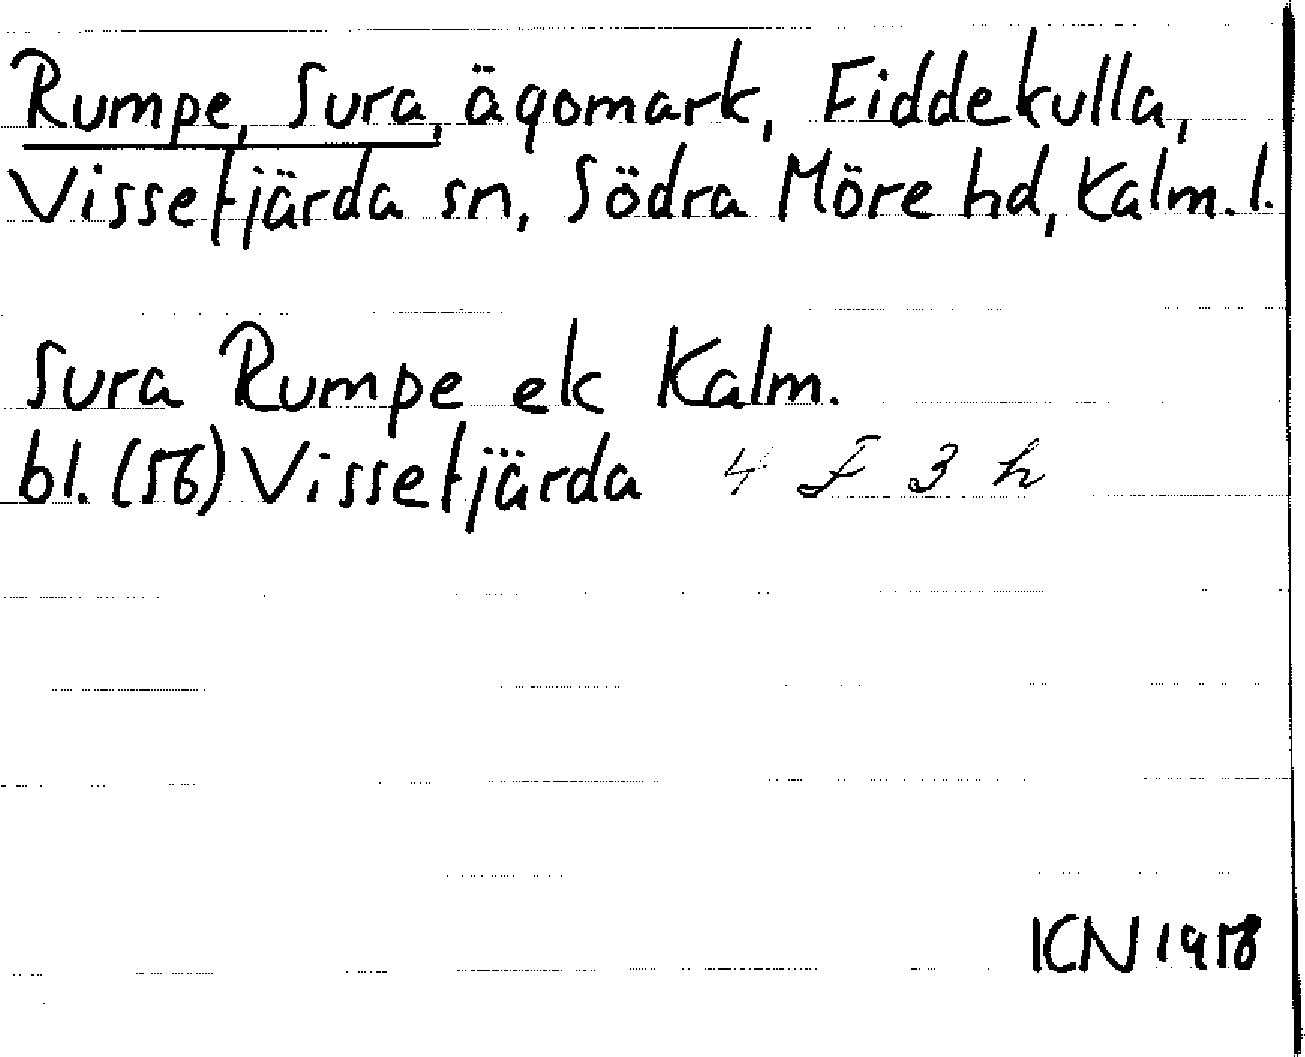 Rumpe, Sura, ägomark, Fiddekulla,
Vissefjärda sn, Södra Möre hd, Kalm. l.
Sura Rumpe ek Kalm.
bl. (56) Vissefjärda 4 F 3 h
ICN 1958